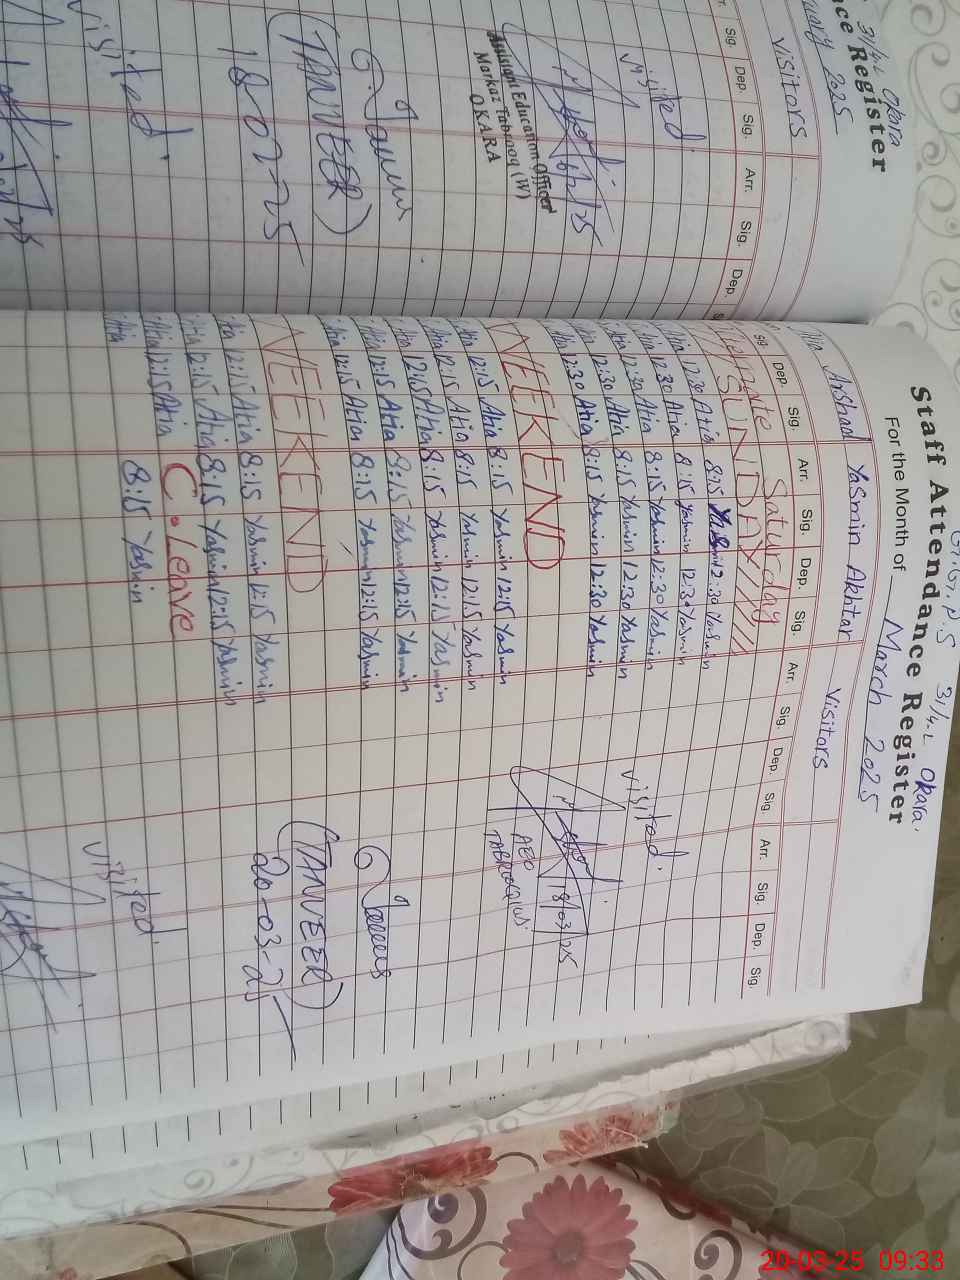 31/4.L Okara
ce Register
2025
Visitors
Sig. Dep. Sig. Arr. Sig. Dep.
Visited.
Assistant Education Officer
Markaz Tabrooq (W)
OKARA
(TANVEER)
18-02-25
Visited.
P.S 31/4.L Okara.
Staff Attendance Register
For the Month of March 2025
Arshad Yasmin Akhtar Visitors
Dep. Sig. Arr. Sig. Dep. Sig. Arr. Sig. Dep. Sig. Arr. Sig. Dep. Sig.
Saturday
SUNDAY
12:30 Atia 8:15 Yasmin 12:30 Yasmin
12:30 Atia 8:15 Yasmin 12:30 Yasmin
12:30 Atia 8:15 Yasmin 12:30 Yasmin Visited.
12:30 Atia 8:15 Yasmin 12:30 Yasmin
12:30 Atia 8:15 Yasmin 12:30 Yasmin 18/03/25
WEEKEND
AEO
12:15 Atia 8:15 Yasmin 12:15 Yasmin
12:15 Atia 8:15 Yasmin 12:15 Yasmin
12:15 Atia 8:15 Yasmin 12:15 Yasmin
12:15 Atia 8:15 Yasmin 12:15 Yasmin
12:15 Atia 8:15 Yasmin 12:15 Yasmin
WEEKEND (TANVEER)
12:15 Atia 8:15 Yasmin 12:15 Yasmin 20-03-25
12:15 Atia 8:15 Yasmin 12:15 Yasmin
12:15 Atia C.Leave
Atia 8:15 Yasmin
Visited.
20-03-25 09:33